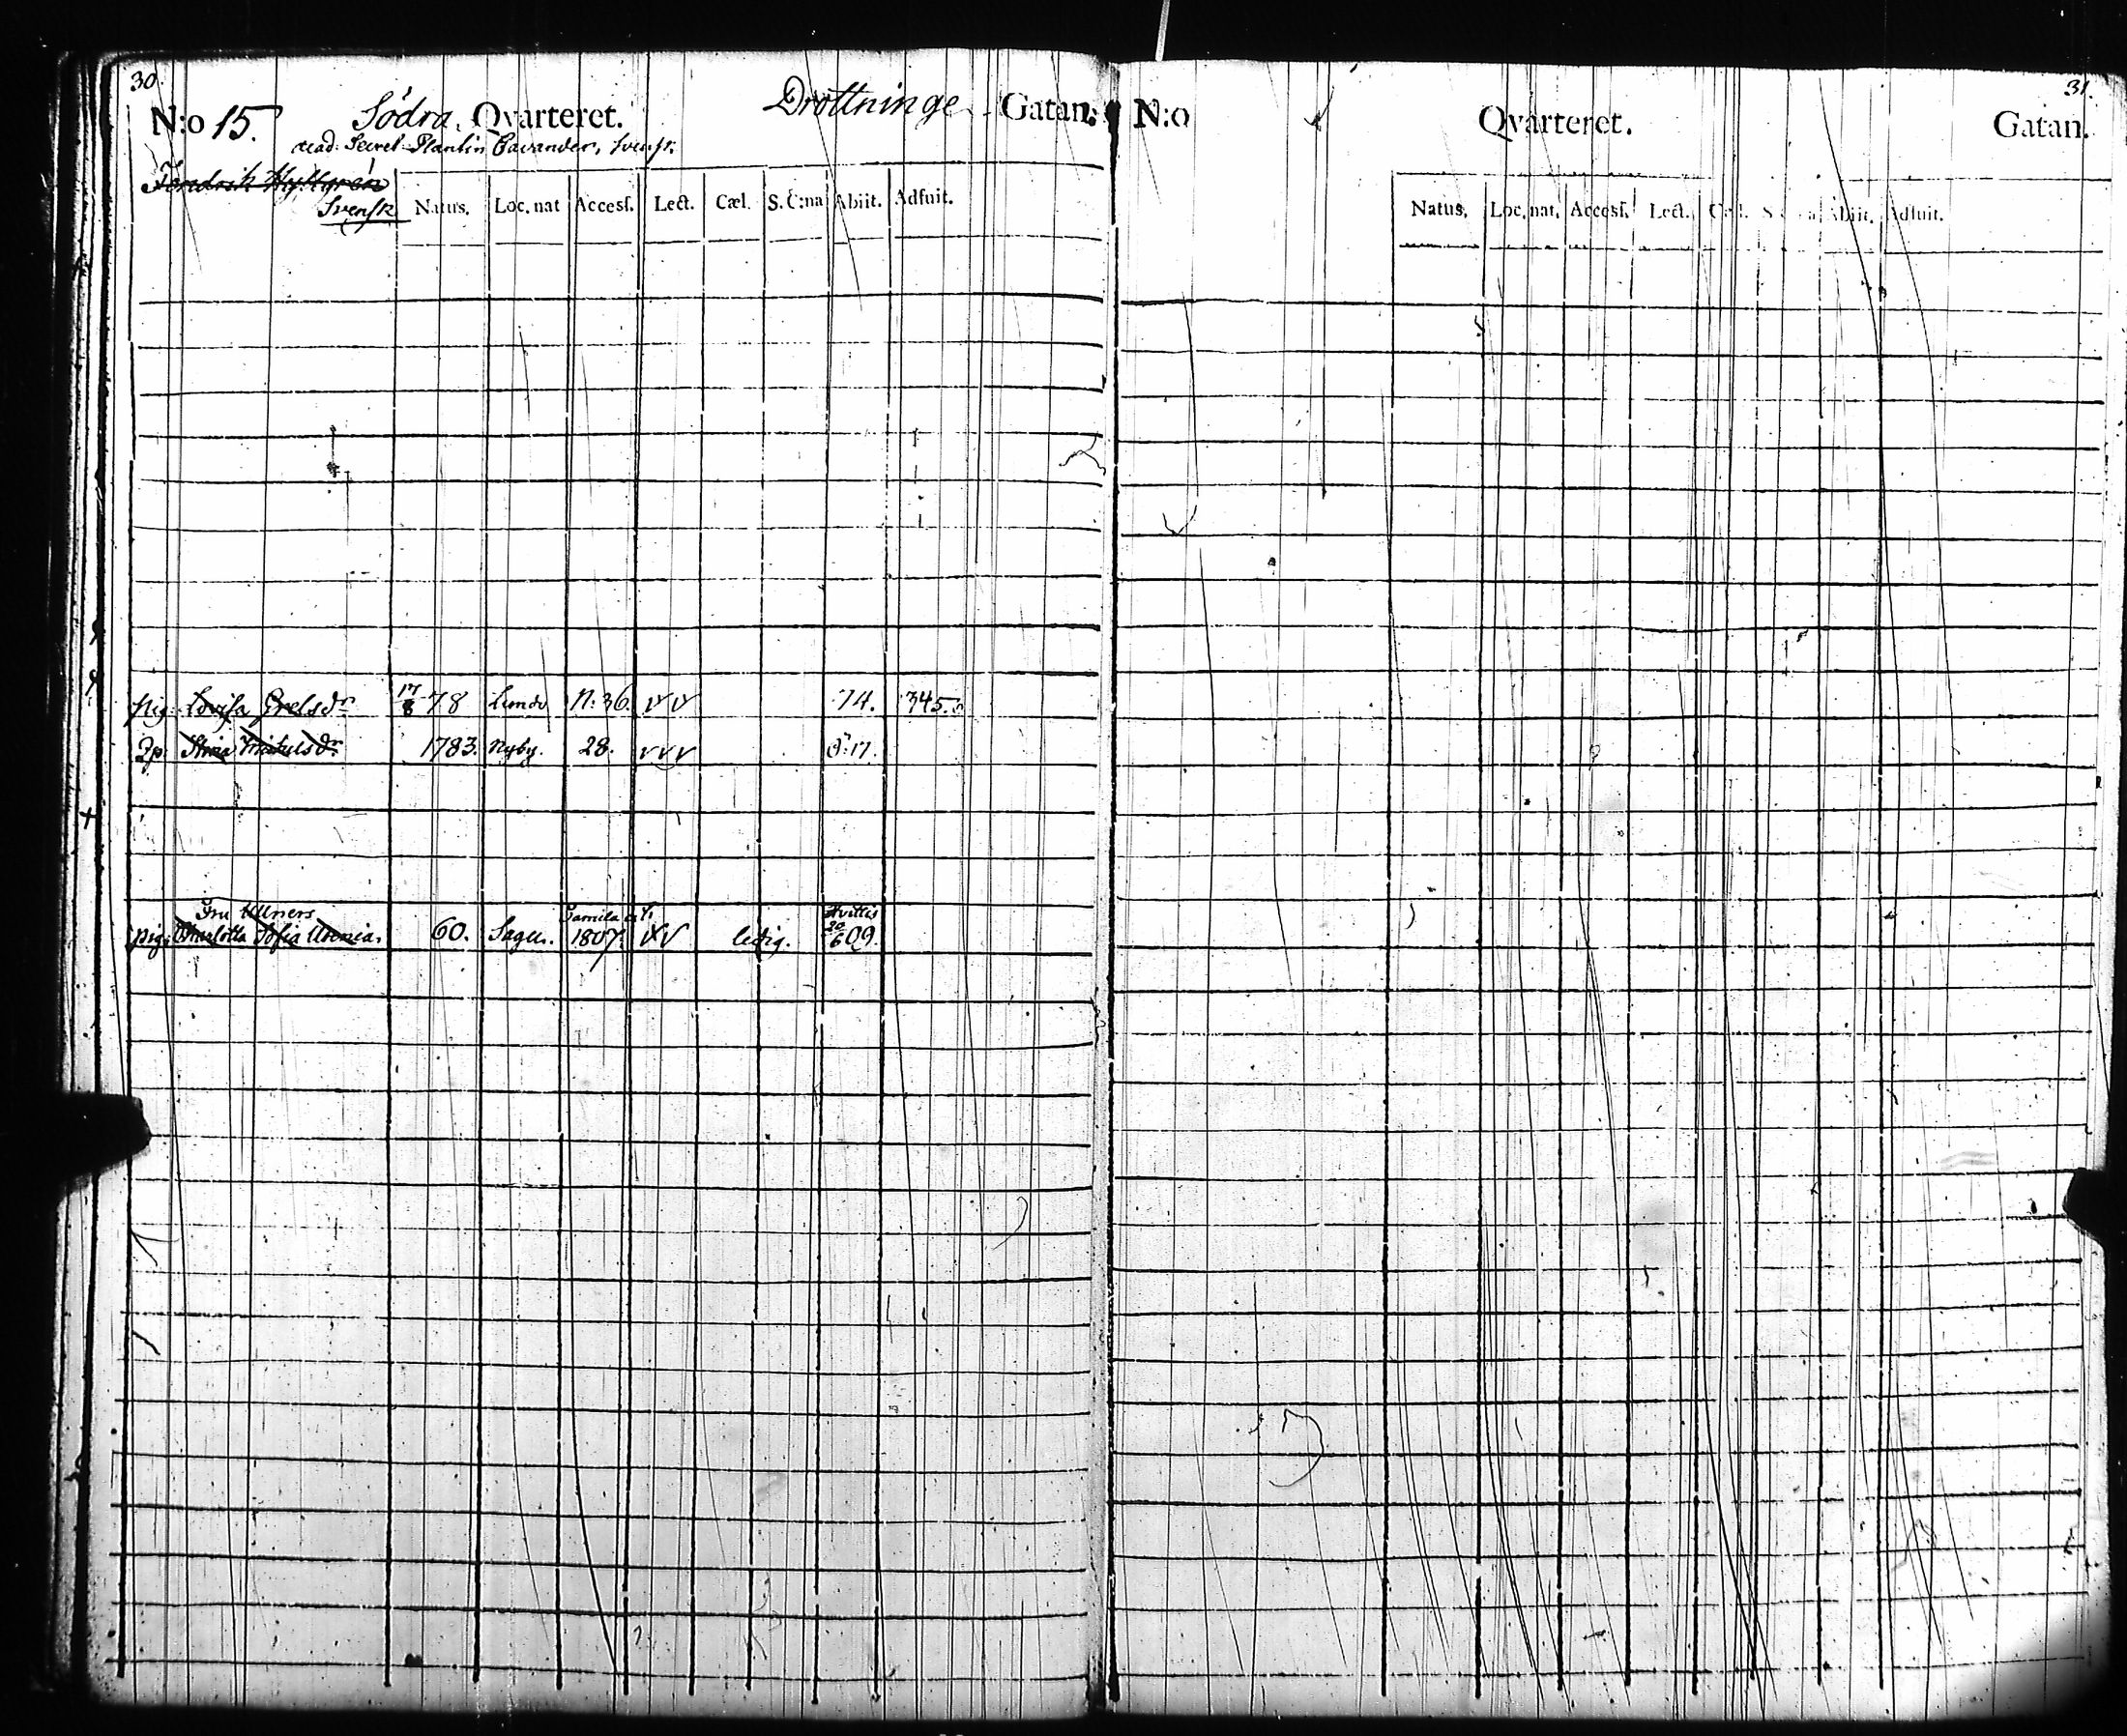 30.
N:o 15. Södra Qvarteret. Drottninge Gatan.
Secret Plantin Cavander, Svensk.
Fredrik Hyltgrén
Svensk
Natus. Loc. nat Access. Lect. Cæl. S. C:na Abiit. Adfuit.
pig. Lovisa Grelsdr 17/8 78 Lundo N: 36. 14. 345.
Dp. Stina Mickelsdr 1783. Nyby. 28. 17.
Fru Ullners Gamla
pig. Charlotta Sofia 60. Sagu. 1807. ledig. 20/6 09.
31.
N:o Qvarteret. Gatan.
Natus. Loc. nat. Access. Lect. Cæl. S. C:na Abiit. Adfuit.